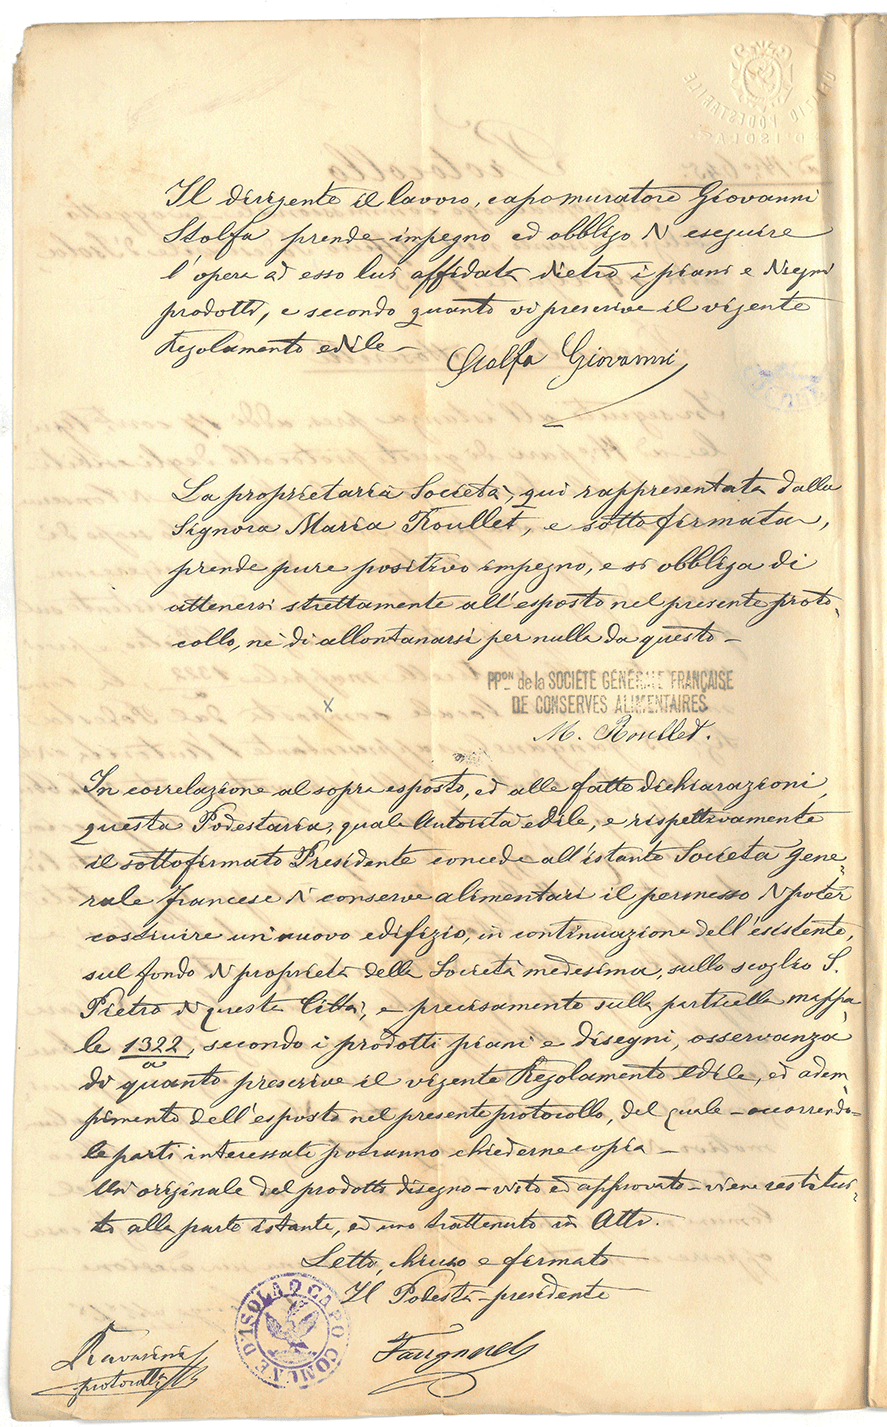 UFFIZIO PODESTARILE
D'ISOLA
Il dirigente il lavoro, capomuratore Giovanni
Stolfa prende impegno ed obbligo di eseguire
l'opera ad esso lui affidata dietro i piani e disegni
prodotti, e secondo quanto vi prescrive il vigente
Regolamento edile –
Stolfa Giovanni
La proprietaria Società, qui rappresentata dalla
Signora Maria Roullet, e sottofirmata,
prende pure positivo impegno, e si obbliga di
attenersi strettamente all'esposto nel presente proto-
collo, nè di allontanarsi per nulla da questo –
PPON de la SOCIÉTÉ GÉNÉRALE FRANÇAISE
DE CONSERVES ALIMENTAIRES
x
M. Roullet.
In correlazione al sopra esposto, ed alle fatte dichiarazioni,
questa Podestaria, quale Autorità edile, e rispettivamente
il sottofirmato Presidente concede all'istante Società gene-
rale francese di conserve alimentari il permesso di poter
costruire un nuovo edifizio, in continuazione dell'esistente,
sul fondo di proprietà della Società medesima, sullo scoglio S.
Pietro di questa Città, e precisamente sulla particella mappa-
le 1322/a, secondo i prodotti piani e disegni, osservanza
di quanto prescrive il vigente Regolamento edile, ed adem-
pimento dell'esposto nel presente protocollo, del quale – occorrendo –
le parti interessate potranno chiederne copia –
Un originale del prodotto disegno – visto ed approvato – viene restitui-
to alla parte istante, ed uno trattenuto in Atti.
Letto, chiuso e firmato
Il Podestà-presidente
COMUNE D'ISOLA CAPO
Ravasini